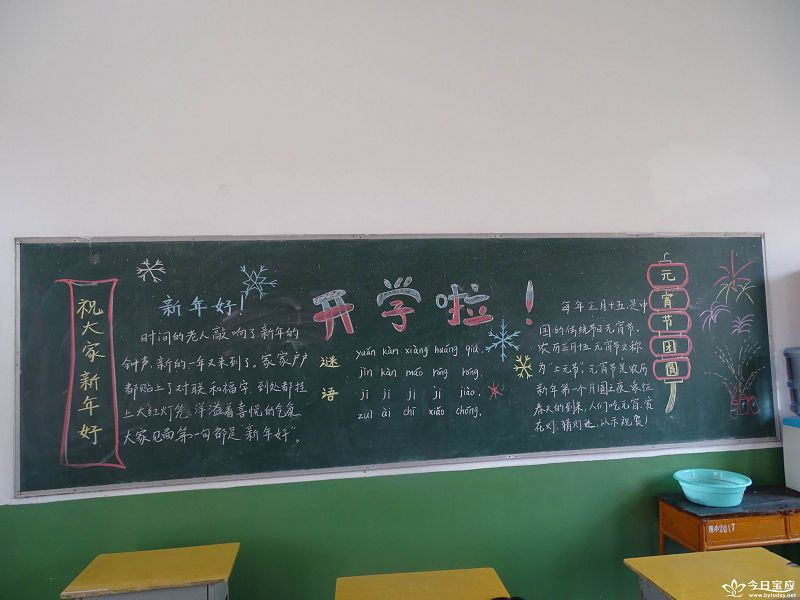 祝大家新年好
新年好!
时间的老人敲响了新年的
钟声,新的一年又来到了。家家户户
都贴上了对联和福字,到处都挂
上大红灯笼,洋溢着喜悦的气氛
大家见面第一句都是“新年好”。
开学啦!
谜语
yuǎn kàn xiàng huáng guā,
jìn kàn máo róng róng,
jī jī jī jī jiào,
zuì ài chī xiǎo chóng,
每年正月十五,是中
国的传统节日元宵节,
农历正月十五元宵节又称
为“上元节”元宵节是农历
新年第一个月圆之夜,象征
春天的到来,人们吃元宵,赏
花灯,猜灯谜,以示祝贺!
元宵节团圆
南小2017
今日宝应
www.bytoday.net